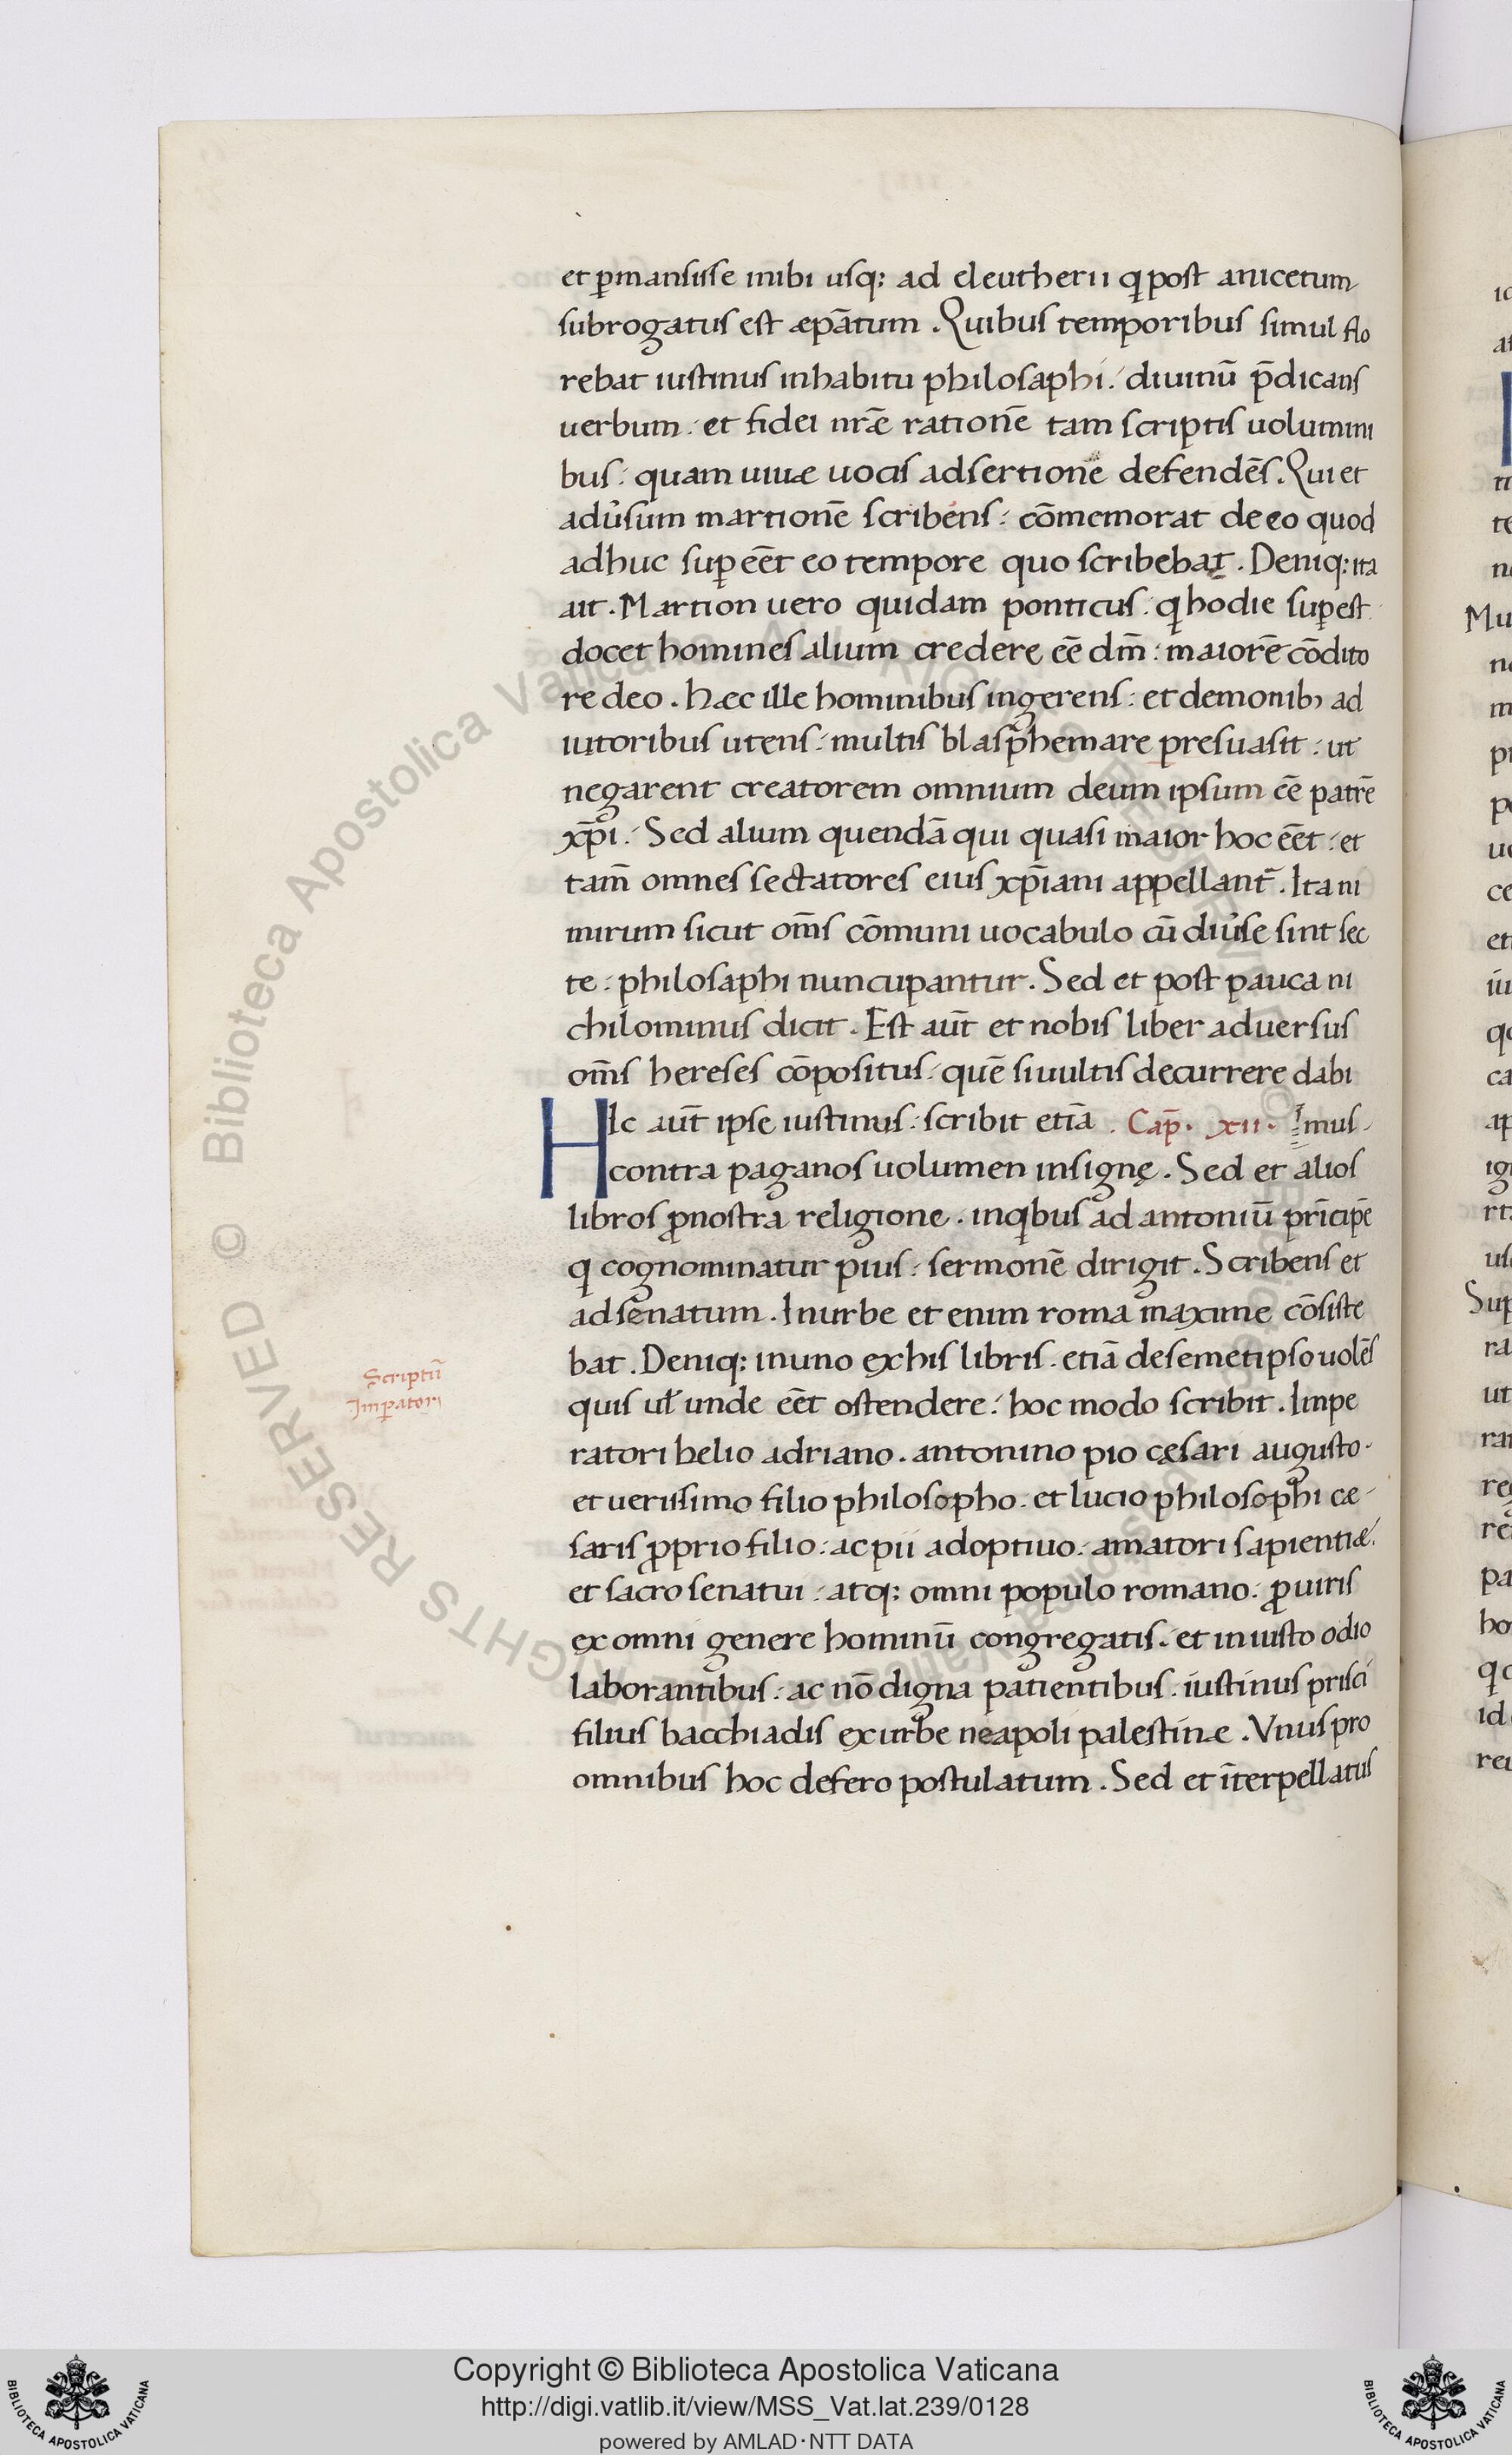 et ꝑmansisse inibi usq; ad eleutherii q post anicetum
subrogatus est æpātum . Quibus temporibus simul flo
rebat iustinus inhabitu philosaphi: diuinū p̄dicans
uerbum: et fidei nr̄æ rationē tam scriptis uolumini
bus: quam uiuæ uocis adsertione defendēs. Qui et
adu̓sum martionē scribens: cōmemorat de eo quod
adhuc suꝑ eēt eo tempore quo scribebat . Deniq; ita
ait . Martion uero quidam ponticus: q hodie suꝑest
docet homines alium credere eē dm̄: maiorē cōdito
re deo . hæc ille hominibus ingerens: et demonibꝫ ad
iutoribus utens: multis blasphemare presuasit: ut
negarent creatorem omnium deum ipsum eē patrē
xp̄i: Sed alium quendā qui quasi maior hoc eēt: et
tam̄ omnes sectatores eius xp̄iani appellant̄ . Ita ni
mirum sicut om̄s cōmuni uocabulo cū diu̓se sint sec
te: philosaphi nuncupantur . Sed et post pauca ni
chilominus dicit . Est aut̄ et nobis liber aduersus
om̄s hereses cōpositus: quē siuultis decurrere dabi
HIc aut̄ ipse iustinus: scribit etiā . Cap̄. xii. imus.
contra paganos uolumen insignę . Sed et alios
libros ꝓnostra religione . inqbus ad antoniū prīcipē
q cognominatur pius: sermonē dirigit . Scribens et
adsenatum . Inurbe et enim roma maxime cōsiste
bat . Deniq; inuno exhis libris. etiā desemetipso uolēs
quis ul̄ unde eēt ostendere: hoc modo scribit . Impe
ratori helio adriano . antonino pio cęsari augusto.
et uerissimo filio philosopho. et lucio philosophi cæ
saris ꝓprio filio: ac pii adoptiuo: amatori sapientiæ.
et sacro senatui: atq; omni populo romano: ꝓ uiris
ex omni genere hominū congregatis. et iniusto odio
laborantibus: ac nō digna patientibus. iustinus prisci
filius bacchiadis exurbe neapoli palestinæ . Vnus pro
omnibus hoc defero postulatum . Sed et īterpellatus
Scriptū
Imꝑatori
Copyright © Biblioteca Apostolica Vaticana
http://digi.vatlib.it/view/MSS_Vat.lat.239/0128
powered by AMLAD·NTT DATA
BIBLIOTECA APOSTOLICA VATICANA
BIBLIOTECA APOSTOLICA VATICANA